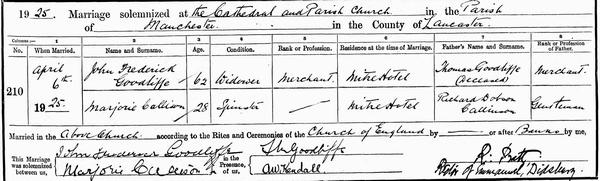 1925. Marriage solemnized at the Cathedral and Parish Church in the Parish
of Manchester in the County of Lancaster
Columns:— 1 2 3 4 5 6 7 8
No. When Married. Name and Surname. Age. Condition. Rank or Profession. Residence at the time of Marriage. Father's Name and Surname. Rank or Profession of Father.
210 April 6th 1925. John Frederick Goodliffe 62 Widower Merchant. Mitre Hotel Thomas Goodliffe (deceased) Merchant.
Marjorie Callison 28 Spinster — Mitre Hotel Richard Dobson Callinson Gentleman
Married in the Above Church according to the Rites and Ceremonies of the Church of England by — or after Banns by me,
This Marriage was solemnized between us, John Frederick Goodliffe in the Presence of us, Goodliffe
Marjorie Callison A W Kendall Rector of Emmanuel, Didsbury.